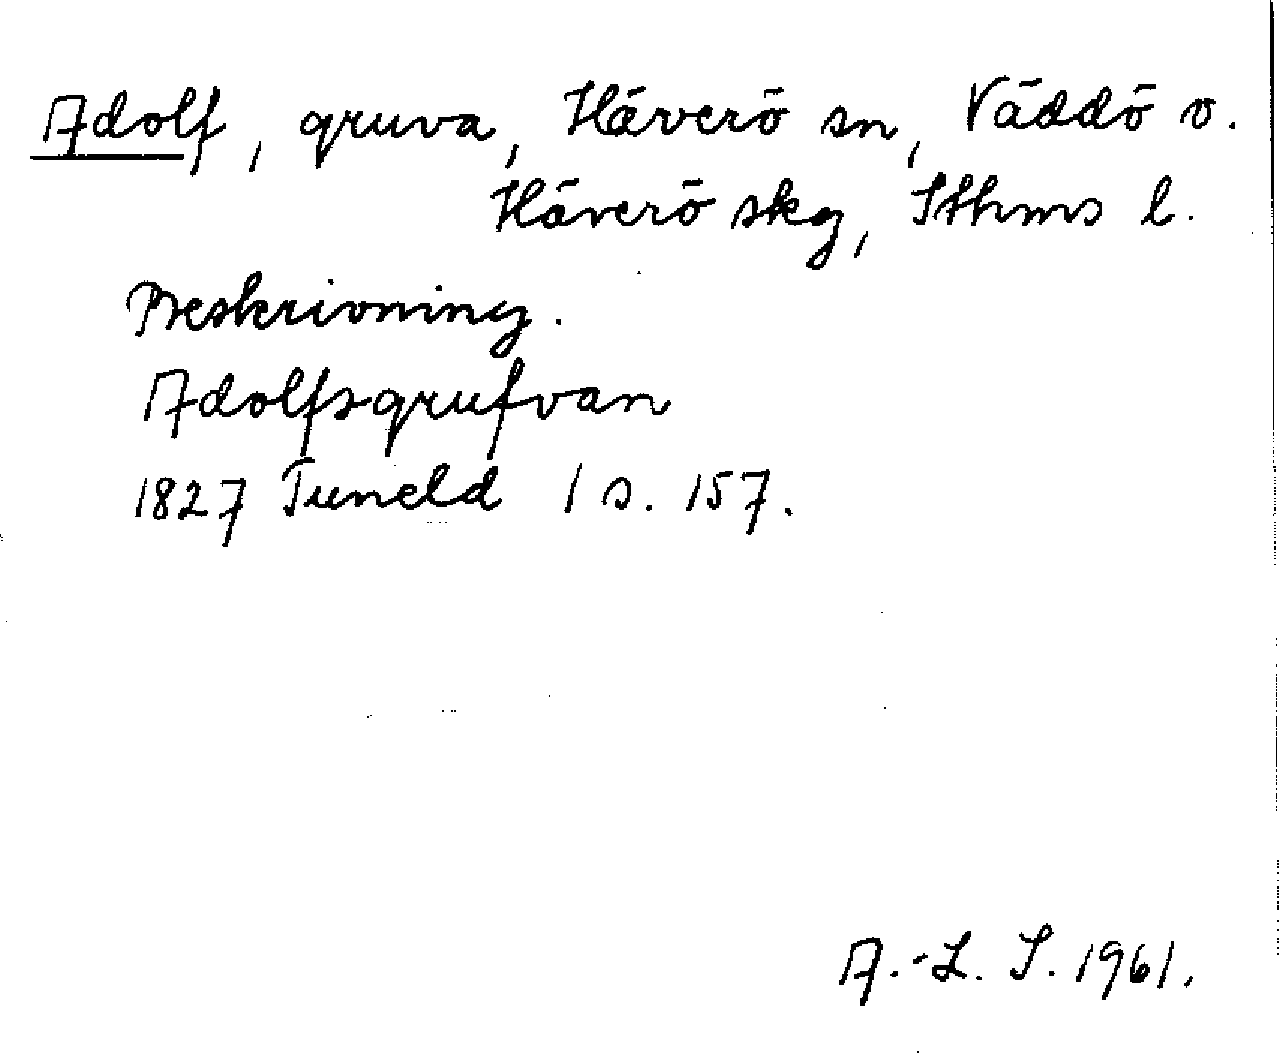 Adolf, gruva, Häverö sn, Väddö o.
Häverö skg, Sthms l.
Beskrivning.
Adolfsgrufvan
1827 Tuneld 1 s. 157.
A.-L. S. 1961.